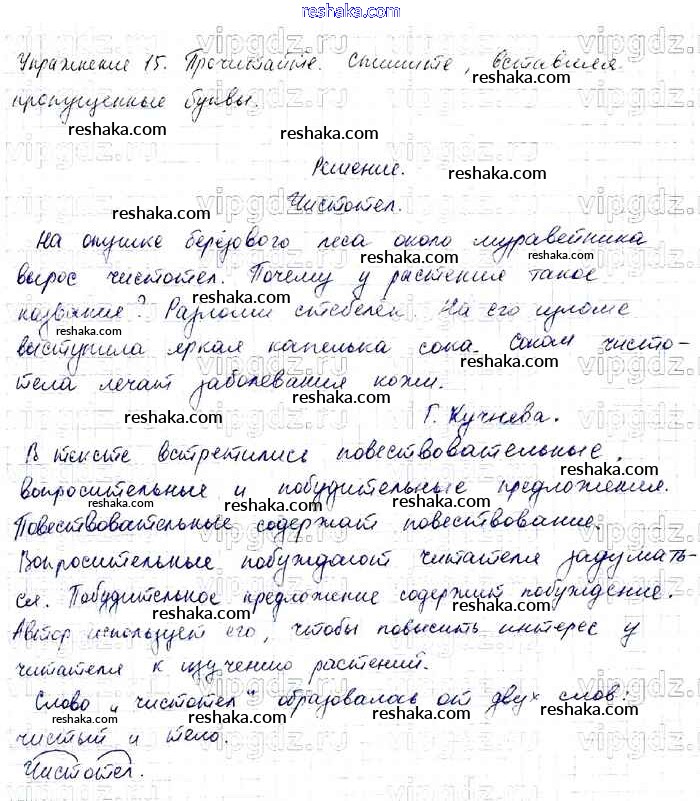 reshaka.com
Упражнение 15. Прочитайте. Спишите, вставляя
пропущенные буквы.
Решение.
Чистотел.
На опушке берёзового леса около муравейника
вырос чистотел. Почему у растения такое
название? Разломи стебелёк. На его изломе
выступила яркая капелька сока. Соком чисто-
тела лечат заболевания кожи.
Г. Кучнева.
В тексте встретились повествовательные,
вопросительные и побудительные предложения.
Повествовательные содержат повествование.
Вопросительные побуждают читателя задумать-
ся. Побудительное предложение содержит побуждение.
Автор использует его, чтобы повысить интерес у
читателя к изучению растений.
Слово „чистотел" образовалось от двух слов:
чистый и тело.
Чистотел.